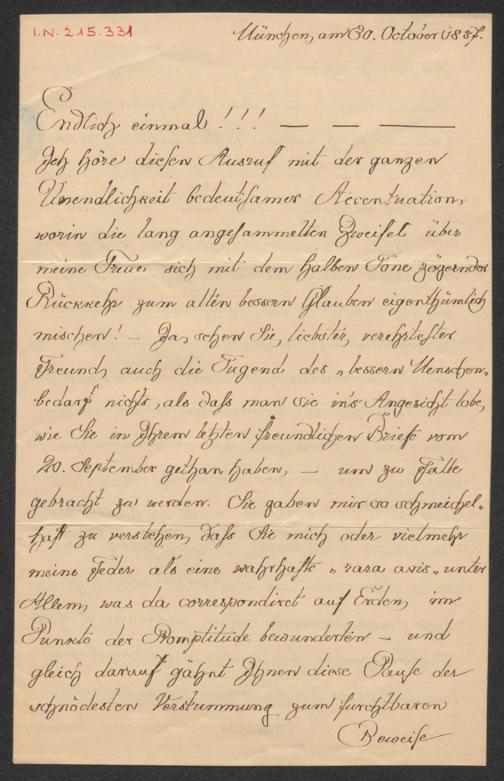 I.N. 215.331
München, am 30. October 1887.
Endlich einmal!!! — — —
Ich höre diesen Ausruf mit der ganzen
Unendlichkeit bedeutsamer Accentuation,
worin die lang angesammelten Zweifel über
meine Treue sich mit dem halben Tone zögernder
Rückkehr zum alten bessern Glauben eigenthümlich
mischen! – Ja, sehen Sie, liebster, verehrtester
Freund, auch die Tugend des „bessern Menschen"
bedarf nichts, als daß man sie in's Angesicht lobe,
wie Sie in Ihrem letzten freundlichen Briefe vom
20. September gethan haben, – um zu Falle
gebracht zu werden. Sie gaben mir so schmeichel-
haft zu verstehen, daß Sie mich oder vielmehr
meine Feder als eine wahrhafte „rara avis" unter
Allem, was da correspondirt auf Erden, im
Punkto der Promptitude bewunderten – und
gleich darauf gähnt Ihnen diese Pause der
schnödesten Verstummung zum furchtbaren
Beweise